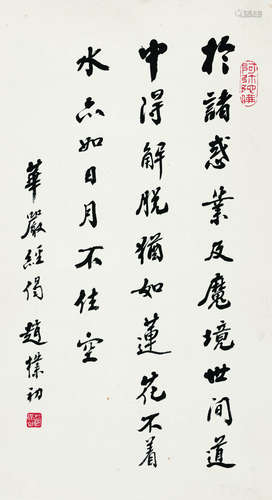 於諸惑業及魔境世間道
中得解脱猶如蓮花不着
水亦如日月不住空
華嚴經偈 趙樸初
阿弥陀佛